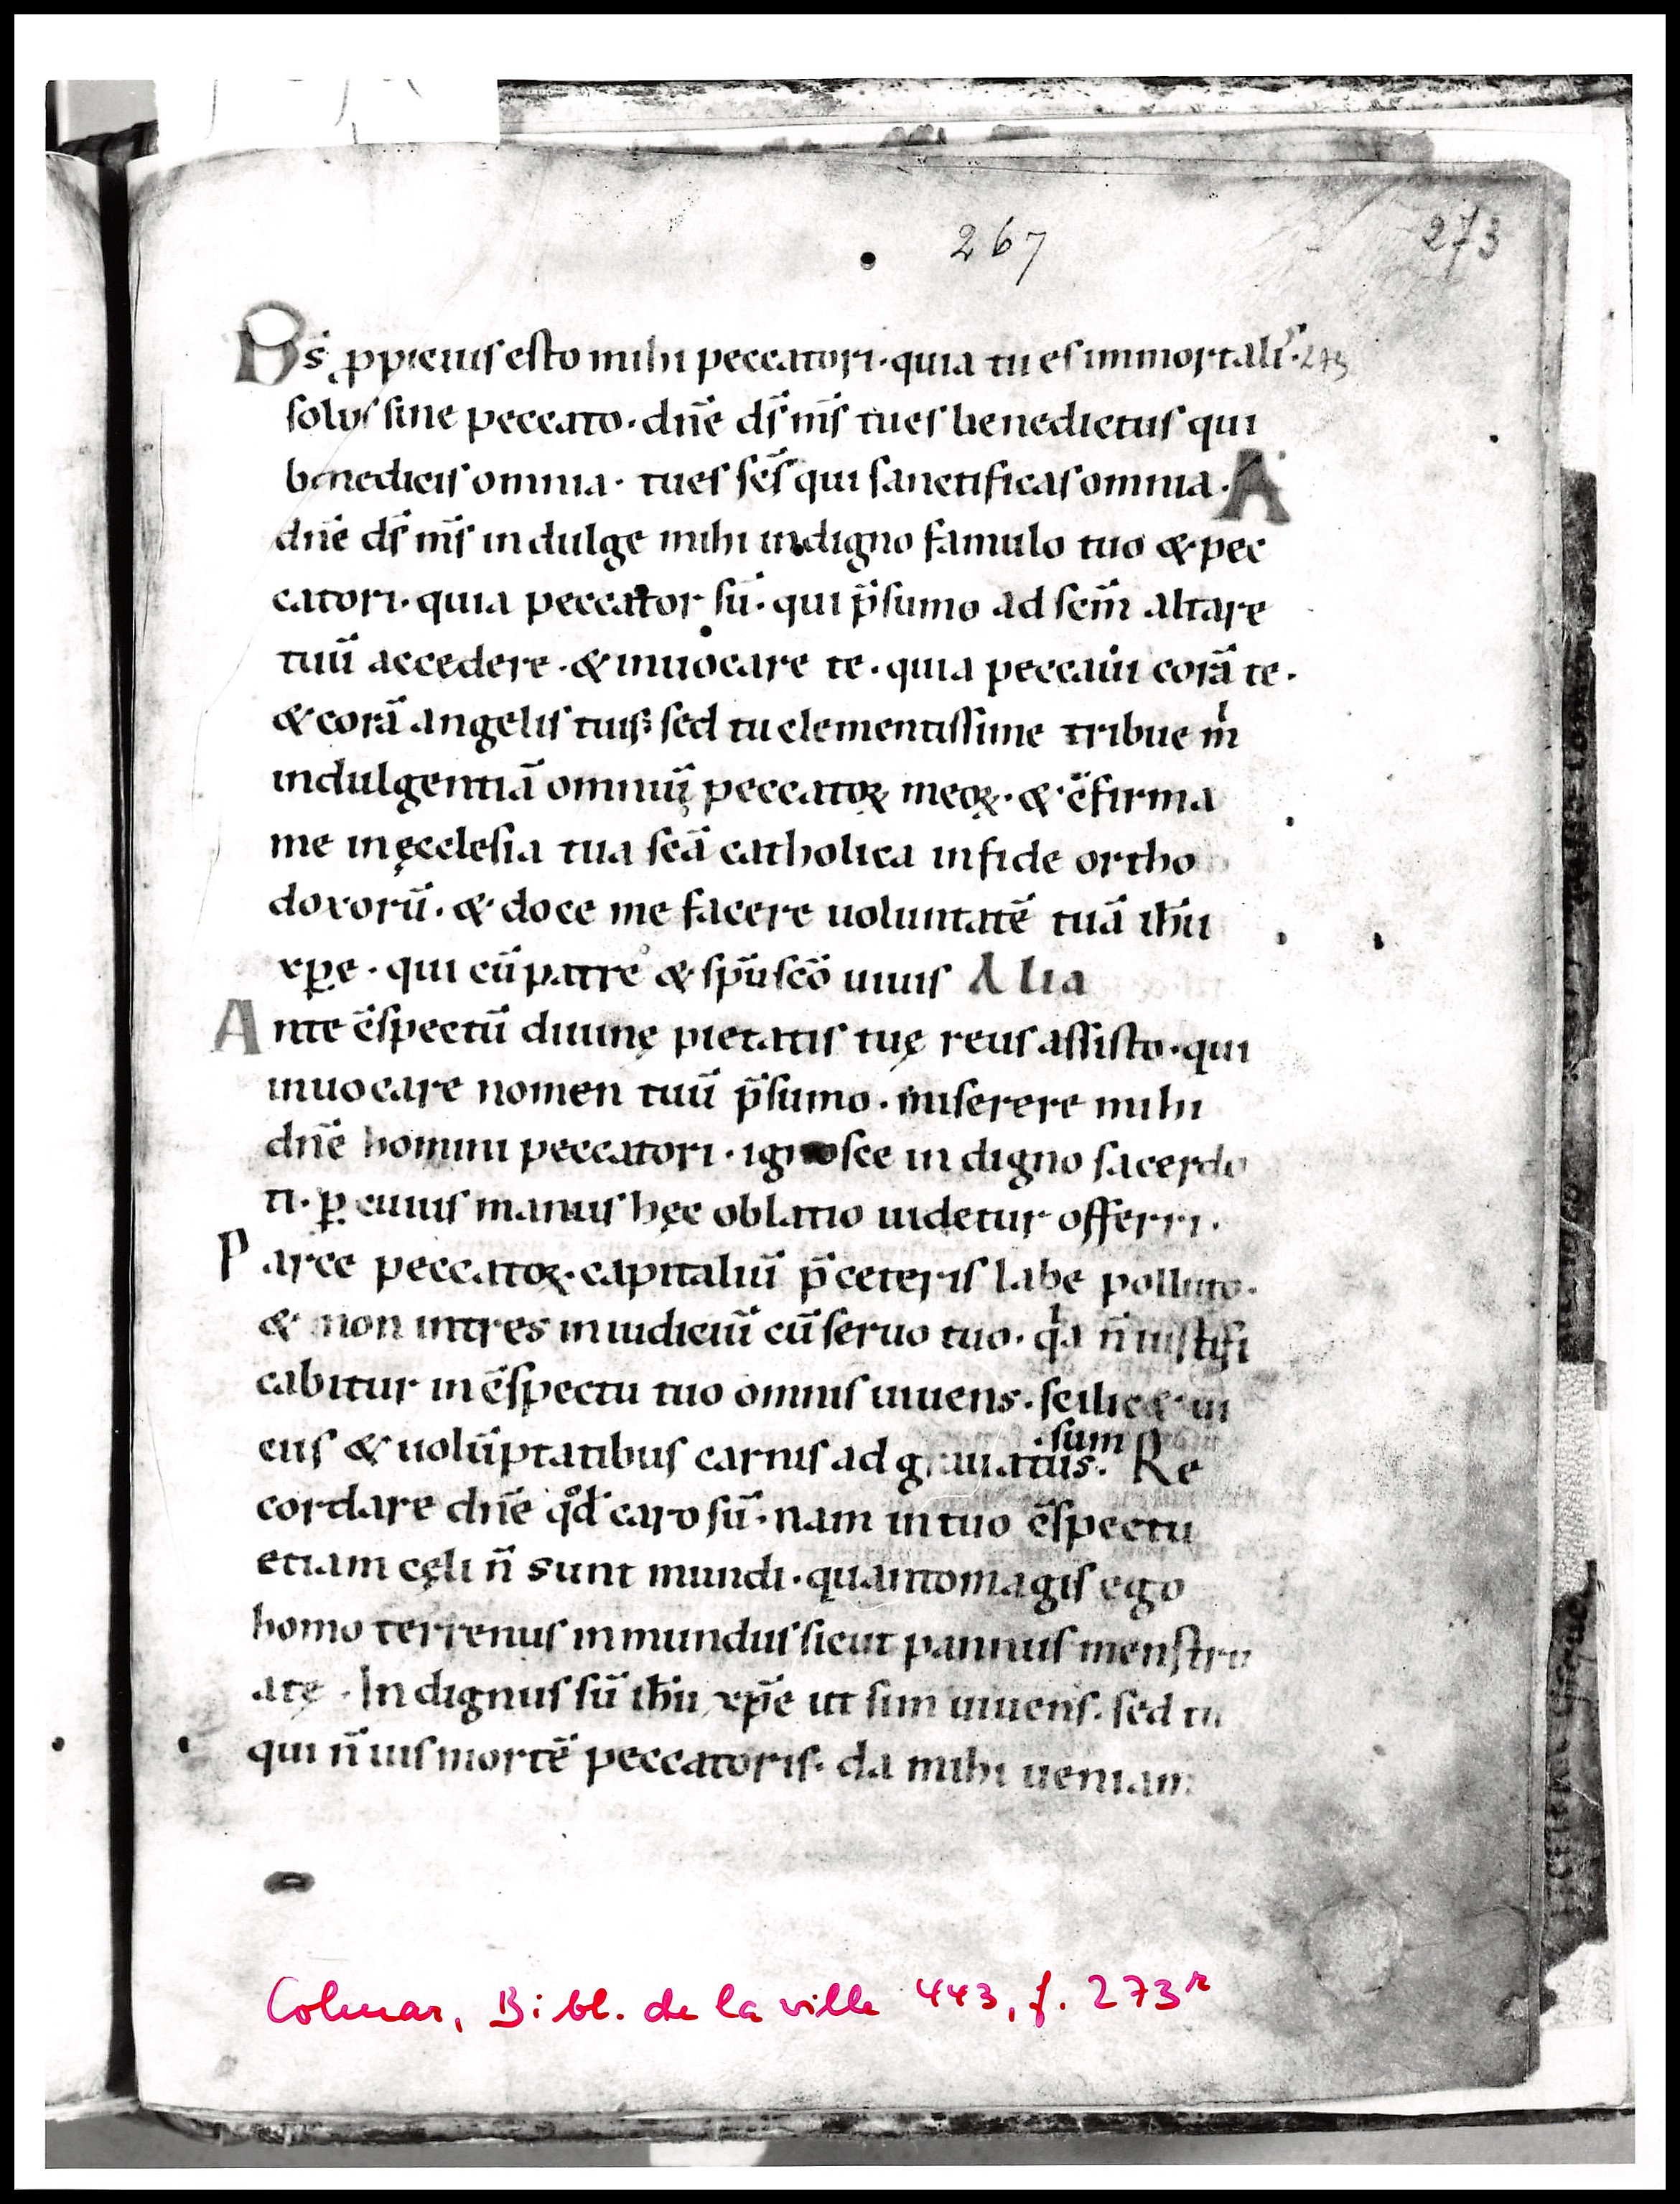 267
273
Ds̄ ꝓpicius esto mihi peccatori · quia tu es immortalis · 273
solus sine peccato · dn̄e ds̄ nr̄s tu es benedictus qui
benedicis omnia · tu es sc̄s qui sanctificas omnia · A
dn̄e ds̄ nr̄s indulge mihi indigno famulo tuo & pec
catori · quia peccator sū · qui p̄sumo ad sc̄m altare
tuū accedere · & inuocare te · quia peccaui corā te ·
& corā angelis tuis · sed tu clementissime tribue m̍
indulgentiā omniū peccatoꝝ meoꝝ · & c̄firma
me in ęcclesia tua sc̄a catholica in fide ortho
doxorū · & doce me facere uoluntatē tuā ih̄u
xp̄e · qui cū patre & sp̄u sc̄o uiuis Alia
Ante c̄spectū diuinę pietatis tuę reus assisto · qui
inuocare nomen tuū p̄sumo · miserere mihi
dn̄e homini peccatori · ignosce indigno sacerdo
ti · ꝑ cuius manus hęc oblatio uidetur offerri ·
Parce peccatoꝝ · capitaliū p̄ ceteris labe polluto ·
& non intres in iudiciū cū seruo tuo · q̍a n̄ iustifi
cabitur in c̄spectu tuo omnis uiuens · scilic& ui
ciis & uolūptatibus carnis adgrauatus · sum Re
cordare dn̄e qd̄ caro sū · nam in tuo c̄spectu
etiam cęli n̄ sunt mundi · quanto magis ego
homo terrenus inmundus sicut pannus menstru
atę · Indignus sū ih̄u xp̄e ut sim uiuens · sed tu
qui n̄ uis mortē peccatoris · da mihi ueniam
Colmar, Bibl. de la ville 443, f. 273r